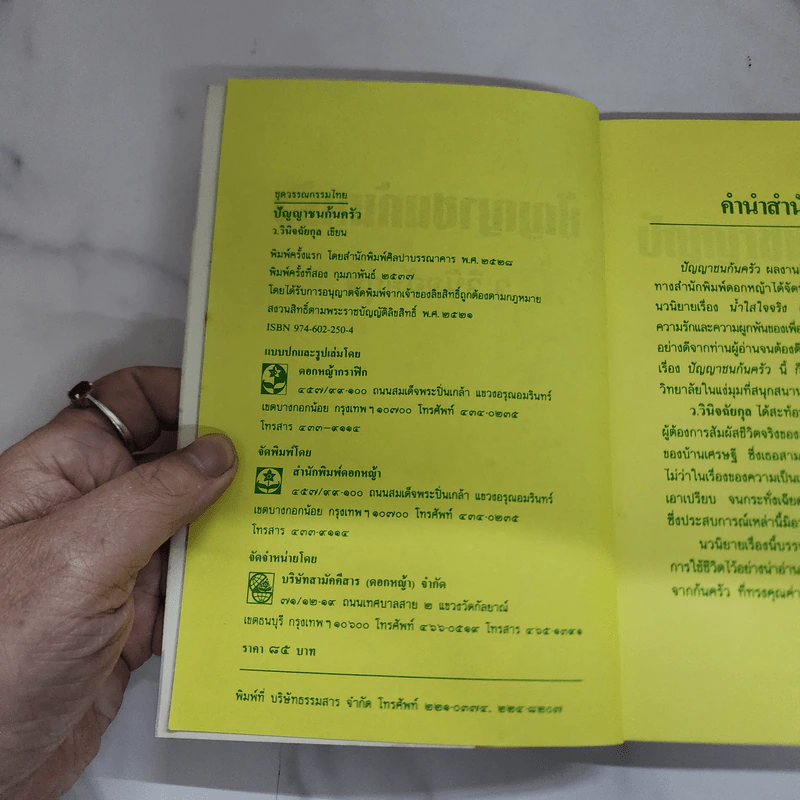 ชุดวรรณกรรมไทย
ปัญญาชนก้นครัว
ว.วินิจฉัยกุล เขียน
พิมพ์ครั้งแรก โดยสำนักพิมพ์ศิลปาบรรณาคาร พ.ศ. ๒๕๒๘
พิมพ์ครั้งที่สอง กุมภาพันธ์ ๒๕๓๗
โดยได้รับการอนุญาตจัดพิมพ์จากเจ้าของลิขสิทธิ์ถูกต้องตามกฎหมาย
สงวนสิทธิ์ตามพระราชบัญญัติลิขสิทธิ์ พ.ศ. ๒๕๒๑
ISBN 974-602-250-4
แบบปกและรูปเล่มโดย
ดอกหญ้ากราฟิก
๔๕๗/๙๙-๑๐๐ ถนนสมเด็จพระปิ่นเกล้า แขวงอรุณอมรินทร์
เขตบางกอกน้อย กรุงเทพฯ ๑๐๗๐๐ โทรศัพท์ ๔๓๔-๐๒๓๕
โทรสาร ๔๓๓-๙๑๑๔
จัดพิมพ์โดย
สำนักพิมพ์ดอกหญ้า
๔๕๗/๙๙-๑๐๐ ถนนสมเด็จพระปิ่นเกล้า แขวงอรุณอมรินทร์
เขตบางกอกน้อย กรุงเทพฯ ๑๐๗๐๐ โทรศัพท์ ๔๓๔-๐๒๓๕
โทรสาร ๔๓๓-๙๑๑๔
จัดจำหน่ายโดย
บริษัทสามัคคีสาร (ดอกหญ้า) จำกัด
๗๑/๑๒-๑๙ ถนนเทศบาลสาย ๒ แขวงวัดกัลยาณ์
เขตธนบุรี กรุงเทพฯ ๑๐๖๐๐ โทรศัพท์ ๔๖๖-๐๕๑๙ โทรสาร ๔๖๕-๑๓๙๑
ราคา ๘๕ บาท
พิมพ์ที่ บริษัทธรรมสาร จำกัด โทรศัพท์ ๒๒๑-๐๓๗๔, ๒๒๔-๘๒๐๗
คำนำสำนั
ปัญญาชนก้นครัว ผลงาน
ทางสำนักพิมพ์ดอกหญ้าได้จัด
นวนิยายเรื่อง น้ำใสใจจริง
ความรักและความผูกพันของเพื่อ
อย่างดีจากท่านผู้อ่านจนต้องตี
เรื่อง ปัญญาชนก้นครัว นี้ ก็
วิทยาลัยในแง่มุมที่สนุกสนาน
ว.วินิจฉัยกุล ได้สะท้อ
ผู้ต้องการสัมผัสชีวิตจริงของ
ของบ้านเศรษฐี ซึ่งเธอสาม
ไม่ว่าในเรื่องของความเป็นเ
เอาเปรียบ จนกระทั่งเฉีย
ซึ่งประสบการณ์เหล่านี้มีอ
นวนิยายเรื่องนี้บรร
การใช้ชีวิตไว้อย่างน่าอ่าน
จากก้นครัว ที่ทรงคุณค่า